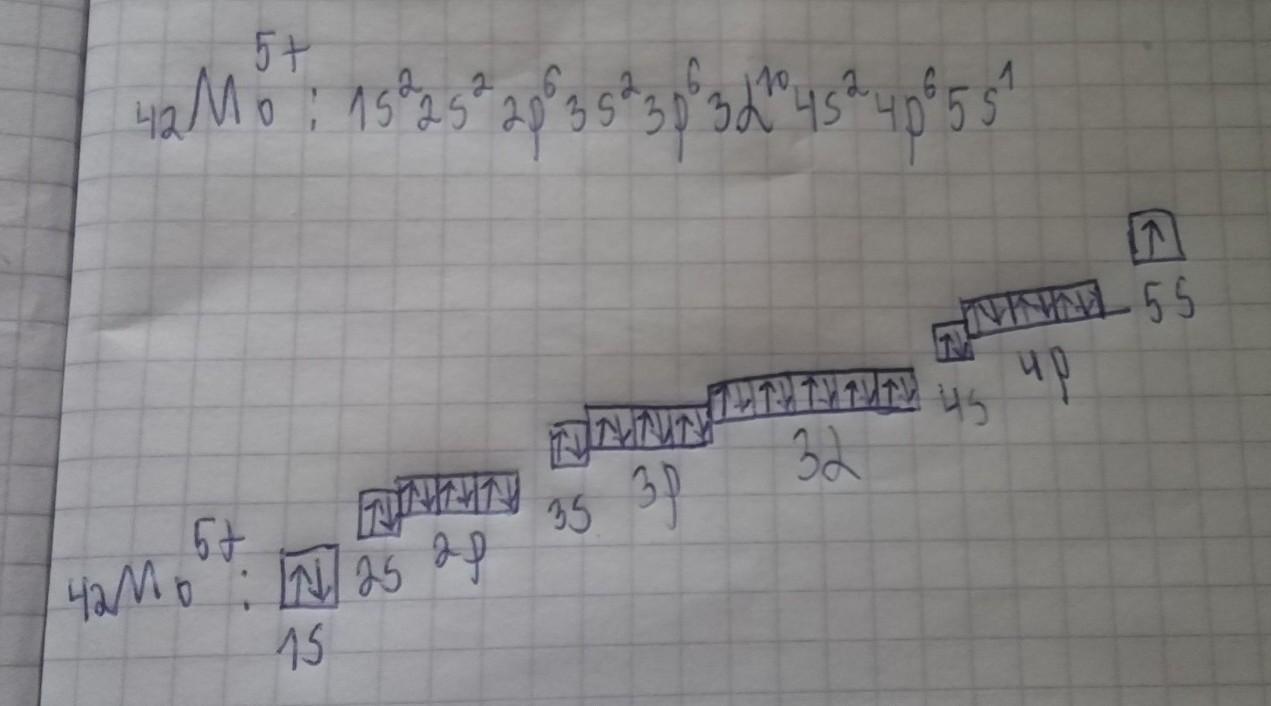 42Mo⁵⁺: 1s²2s²2p⁶3s²3p⁶3d¹⁰4s²4p⁶5s¹
5s
4s 4p
3s 3p 3d
42Mo⁵⁺: 2s 2p
1s